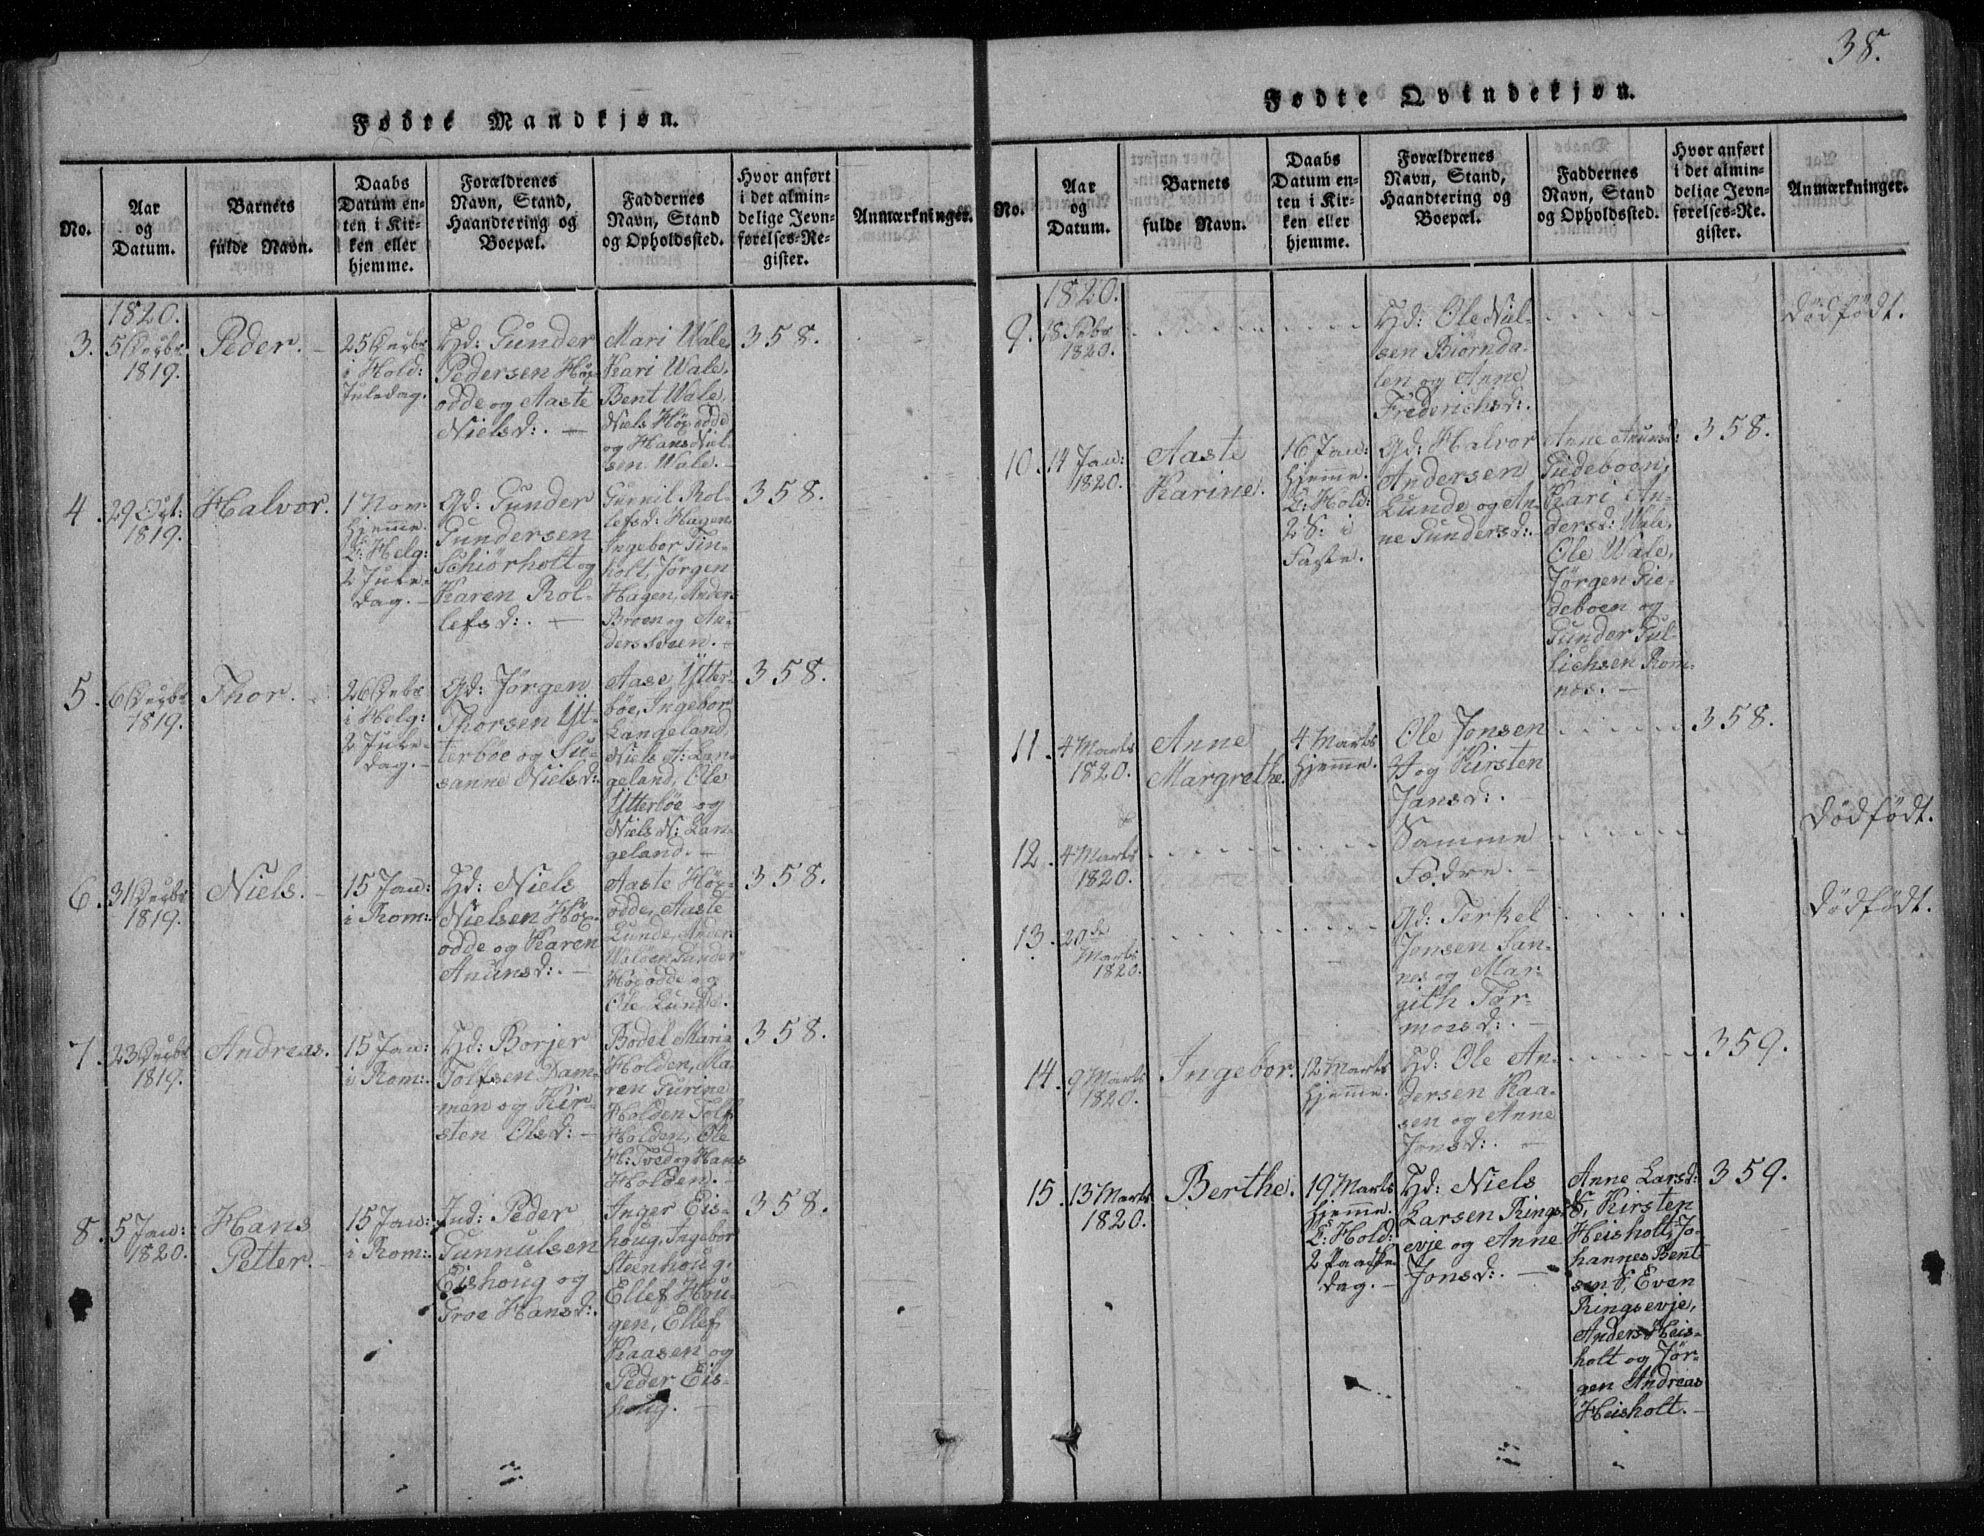 Fødte Mandkjøn.
No.
Aar
og
Datum.
Barnets
fulde Navn.
Daabs
Datum en-
ten i Kir-
ken eller
hjemme.
Forældrenes
Navn, Stand,
Haandtering og
Boepæl.
Faddernes
Navn, Stand
og Opholdssted.
Hvor anført
i det almin-
delige Jevn-
førelses-Re-
gister.
Anmærkninger.
1820.
3.
5 Decbr
1819.
Peder.
25 Decbr
i Hold:
Juledag.
Hd: Gunder
Pedersen Høx-
odde og Aaste
Nielsd:.
Mari Wale,
Kari Wale,
Bent Wale,
Niels Høxodde
og Hans Niel-
sen Wale.
358.
4.
29 Oct:
1819.
Halvor.
1 Nov:
hjemme.
C: Helg:
2 Jule-
dag.
Gd: Gunder
Gundersen
Schiørholt og
Karen Rol-
lefsd:.
Gunnil Rol-
lefsd: Hagen,
Ingebor Tin-
holt, Jørgen
Hagen, Anders
Broen og An-
ders
358.
5.
6 Decbr
1819.
Thor.
26 Decbr
i Helg:
2 Jule-
dag.
Gd: Jørgen
Thorsen Yt-
terbøe og Su-
sanne Nielsd:
Aase Ytter-
bøe, Ingebor
Langeland,
Niels A: Lan-
geland, Ole
Ytterbøe og
Niels N: Lan-
geland.
358.
6.
31 Decbr
1819.
Niels.
15 Jan:
i Rom:
Hd: Niels
Nielsen Høx-
odde og Karen
Anunsd:.
Aaste Høx-
odde, Aaste
Lunde, Anders
Waløen, Gunder
Høxodde og
Ole Lunde.
358.
7.
23 Decbr
1819.
Andreas.
15 Jan:
i Rom:
Hd: Borjer
Tolfsen Dam-
men og Kir-
sten Olsd:
Bodel Maria
Holden, Ma-
ren Gurine
Holden, Tolf
Holden, Ole
H: Tved og Hans
Holden.
358.
8.
5 Jan:
1820.
Hans
Petter.
15 Jan:
i Rom:
Ind: Peder
Gunnulsen
Eishoug og
Groe Hansd:
Inger Eis-
houg, Ingebor
Steenhoug,
Ellef Hou-
gen, Ellef
Kaasen og
Peder Eis-
houg.
358.
38.
Fødte Qvindekjøn.
No.
Aar
og
Datum.
Barnets
fulde Navn.
Daabs
Datum en-
ten i Kir-
ken eller
hjemme.
Forældrenes
Navn, Stand,
Haandtering og
Boepæl.
Faddernes
Navn, Stand
og Opholdssted.
Hvor anført
i det almin-
delige Jevn-
førelses-Re-
gister.
Anmærkninger.
1820.
9.
18 Febr
1820.
Hd: Ole Niel-
sen Biørnda-
len og Anne
Frederichsd:.
dødfødt.
10.
14 Jan:
1820.
Aaste
Karine.
16 Jan:
hjemme.
C: Hold:
2 S: i
Faste.
Gd: Halvor
Andersen
Lunde og An-
ne Gundersd:
Anne Anunsd:
Gudeboen,
Kari An-
dersd: Wale,
Ole Wale,
Jørgen Gie-
deboen og
Gunder Gul-
lichsen Rom-
nes.
358.
11.
4 Marts
1820.
Anne
Margrethe.
4 Marts
hjemme.
Ole Jonsen
H og Kirsten
Jansd:.
358.
12.
4 Marts
1820.
Samme
Fædre.
dødfødt.
13.
20de
Marts
1820.
Gd: Terkel
Jonsen San-
nes og Mar-
gith Tor-
mosd:.
dødfødt.
14.
9 Marts
1820.
Ingebor.
12 Marts
hjemme.
Hd: Ole An-
dersen Kaa-
sen og Anne
Jonsd:.
359.
15.
13 Marts
1820.
Berthe.
19 Marts
hjemme.
C: Hold:
2 Paaske-
dag.
Hd: Niels
Larsen Rings-
evje og Anne
Jonsd:.
Anne Larsd:
S, Kirsten
Heisholt, Jo-
hannes Bent-
sen S, Even
Ringsevje,
Anders Heis-
holt og Jør-
gen Andreas
Heisholt.
359.